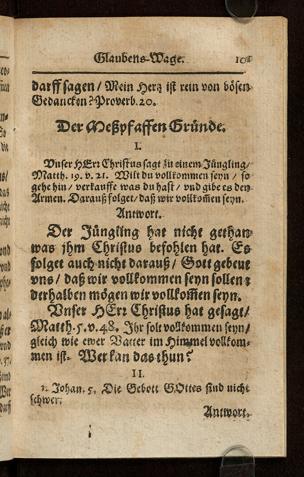 Glaubens-Wage. 101
darff sagen / Mein Hertz ist rein von bösen
Gedancken? Proverb. 20.
Der Meßpfaffen Gründe.
I.
Vnser HErr Christus sagt zu einem Jüngling /
Matth. 19. v. 21. Wilt du vollkommen seyn / so
gehe hin / verkauffe was du hast / vnd gibe es den
Armen. Darauß folget / daß wir vollkom̃en seyn.
Antwort.
Der Jüngling hat nicht gethan
was jhm Christus befohlen hat. Es
folget auch nicht darauß / Gott gebeut
vns / daß wir vollkommen seyn sollen:
derhalben mögen wir vollkom̃en seyn.
Vnser HErr Christus hat gesagt /
Matth. 5. v. 48. Jhr solt vollkommen seyn /
gleich wie ewer Vatter im Himmel vollkom-
men ist. Wer kan das thun?
II.
1. Johan. 5. Die Gebott GOttes sind nicht
schwer.
Antwort.